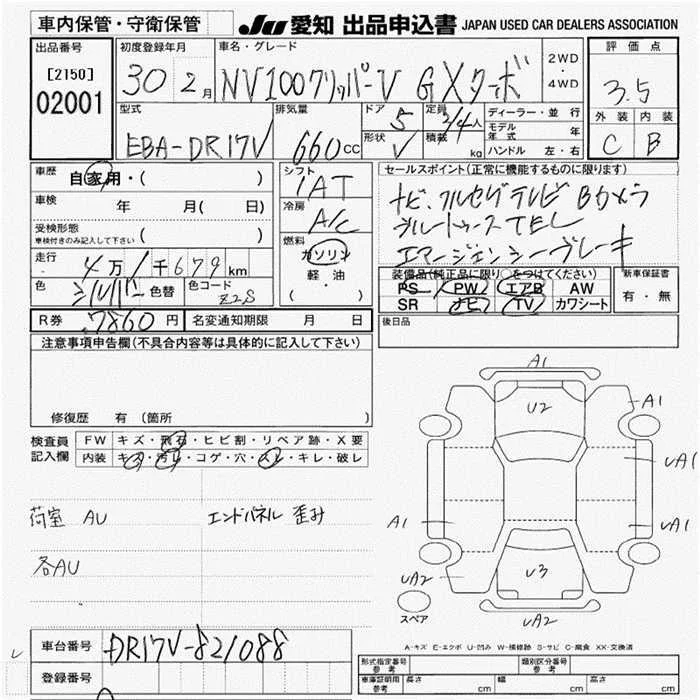 車内保管・守衛保管 JU 愛知 出品申込書 JAPAN USED CAR DEALERS ASSOCIATION
出品番号 初度登録年月 車名・グレード 評価点
[2150] 30 2月 NV100クリッパーV GXターボ 2WD・4WD 3.5
02001
型式 排気量 ドア 5 定員 2/4人 ディーラー・並行 外装 内装
EBA-DR17V 660cc 形状 V 積載 kg モデル年式 年 C B
ハンドル 左・右
車歴 自家用・( ) シフト セールスポイント(正常に機能するものに限ります)
1AT
車検 年 月( 日) 冷房 ナビ、フルセグテレビ Bカメラ
A/C ブルートゥースTEL
受検形態 エマージェンシーブレーキ
車検付きのみ記入して下さい ( ) 燃料
走行 4万1千679km ガソリン 装備品(純正品に限り○をつけてください) 新車保証書
軽油 PS PW エアB AW 有・無
色 シルバー 色替 色コード Z2S ( ・ ) SR ナビ TV カワシート
R券 7860円 名変通知期限 月 日 後日品
注意事項申告欄(不具合内容等は具体的に記入して下さい)
修復歴 有 (箇所
検査員 FW キズ・飛石・ヒビ割・リペア跡・X要
記入欄 内装 キズ・汚れ・コゲ・穴・スレ・キレ・破レ
荷室 AU エンドパネル 歪み
各AU
A1
U2
A1
UA1
A1
UA1
UA2
U3
スペア
UA2
A-キズ E-エクボ U-凹み W-補修跡 S-サビ C-腐食 XX-交換済
車台番号 DR17V-821088
登録番号
形式指定番号 参考 類別区分番号 参考
車庫証明用 参考 長さ cm 幅 cm 高さ cm